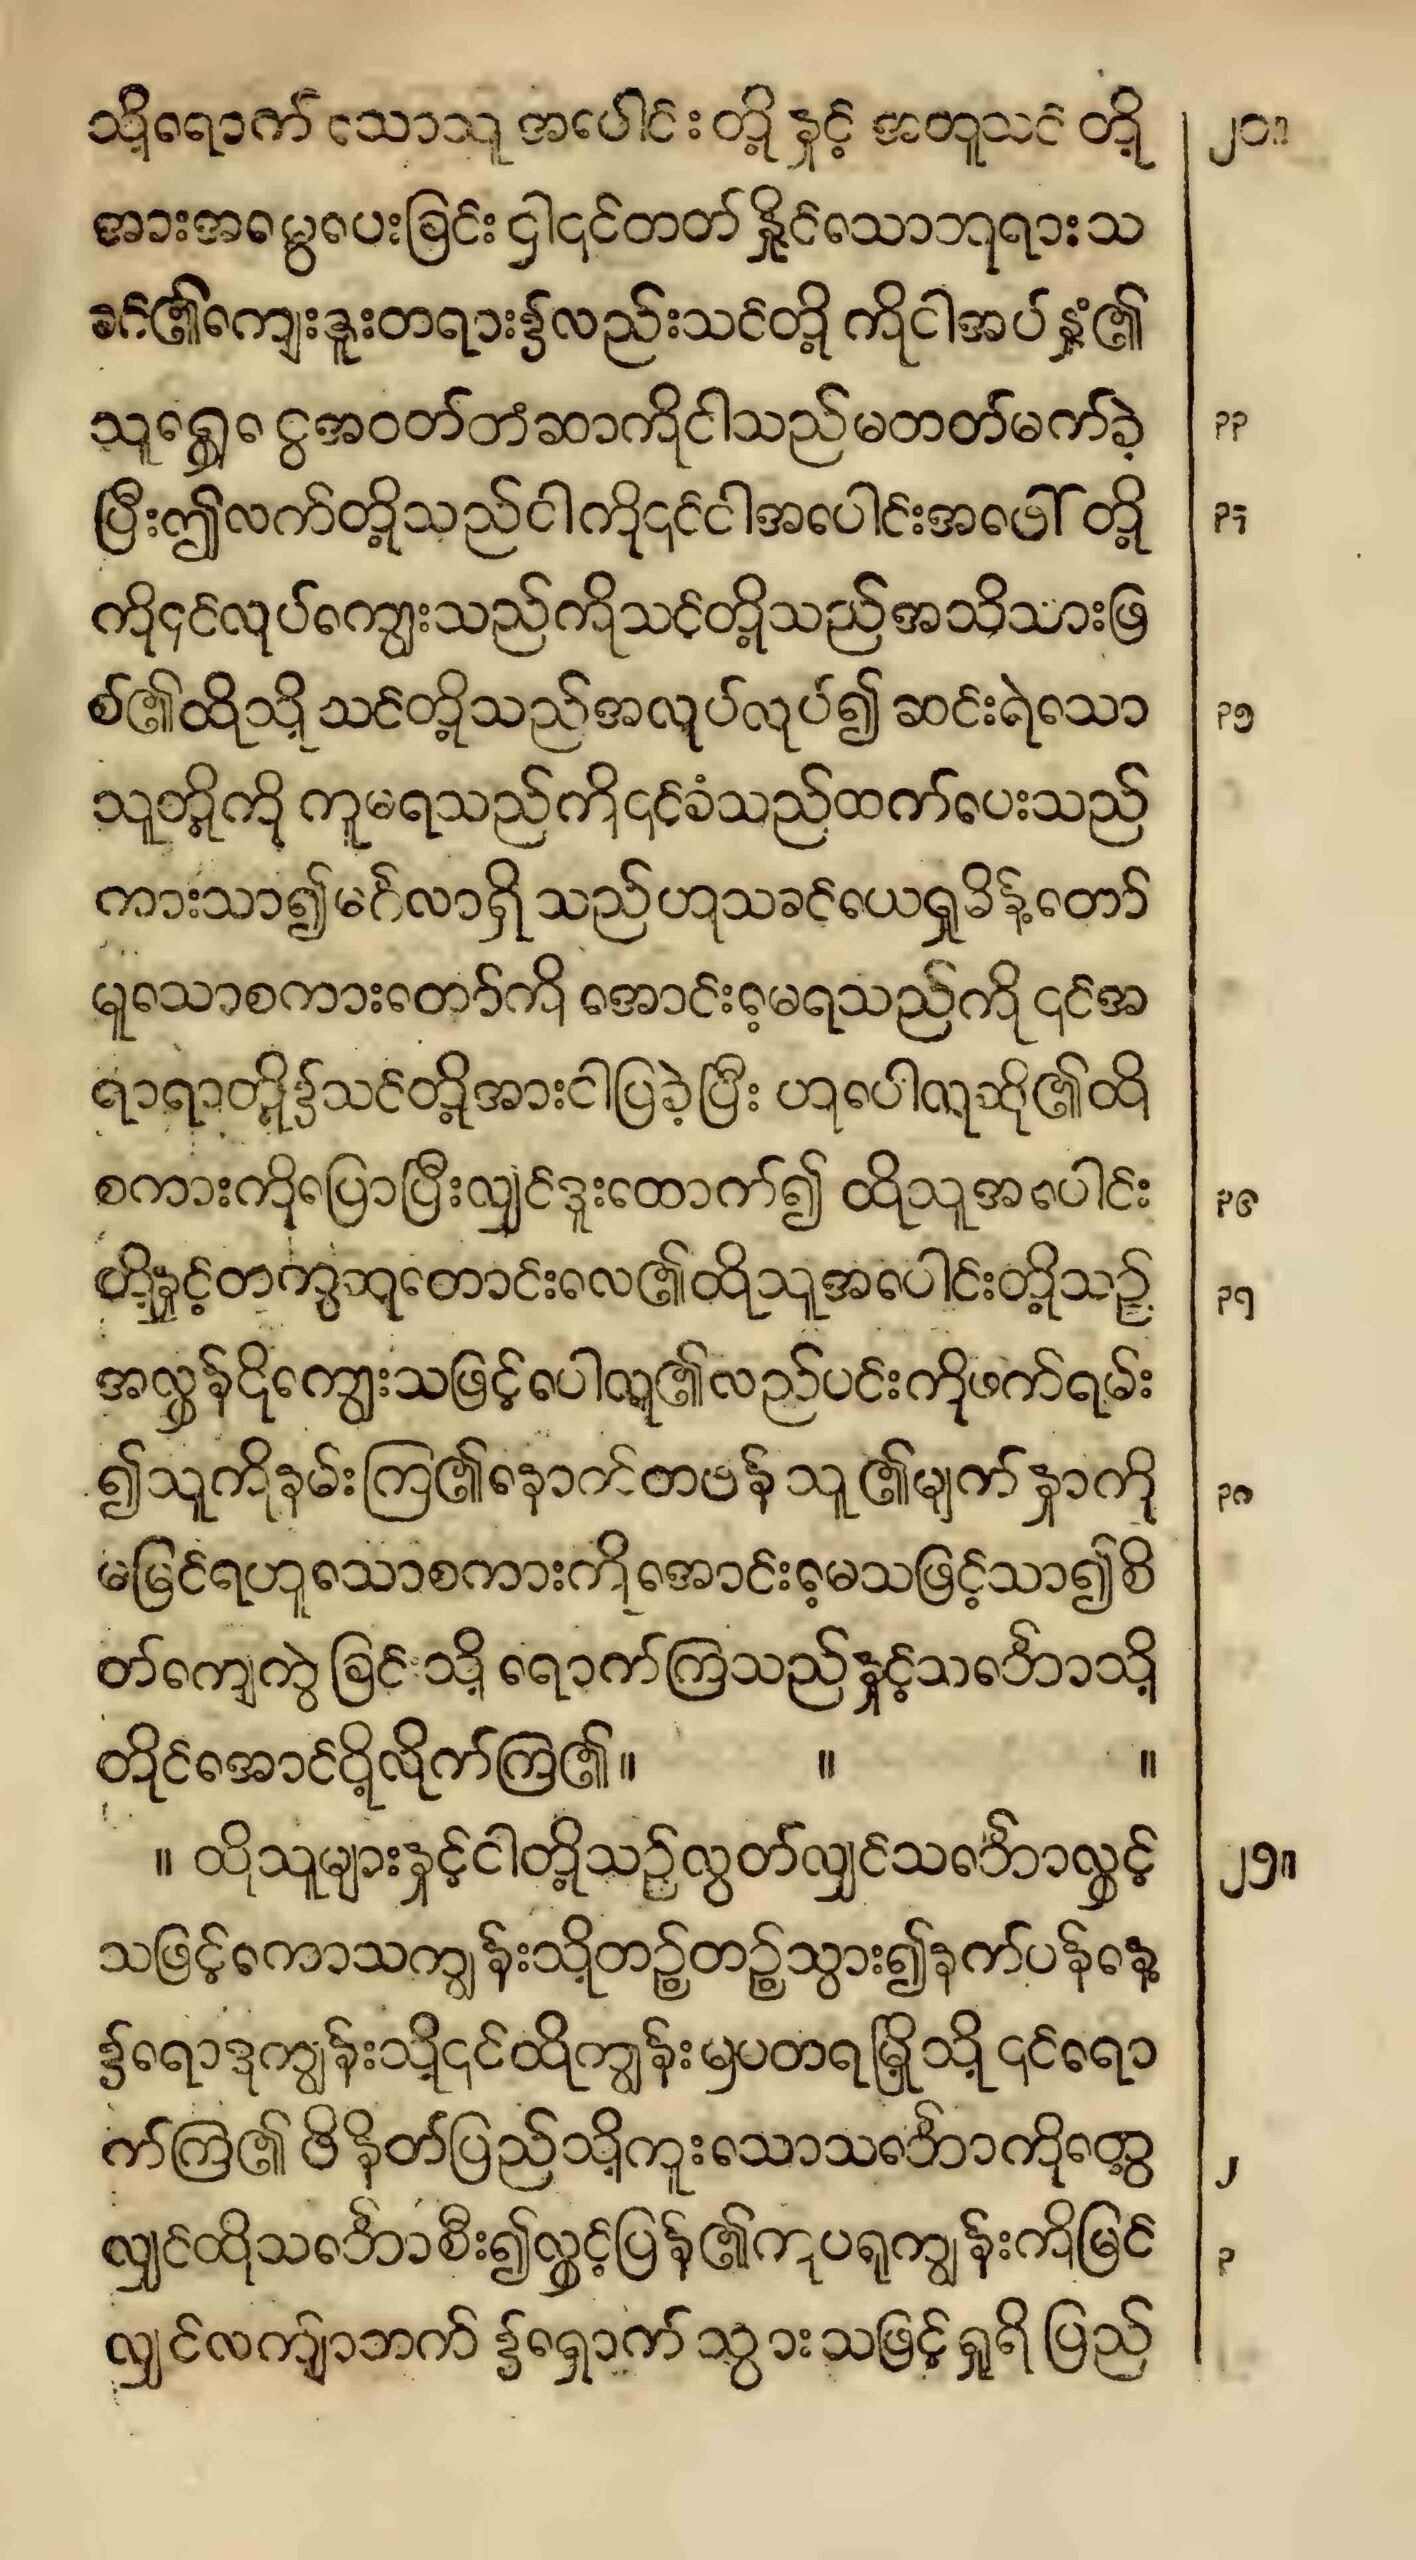 သို့ရောက်သောသူအပေါင်းတို့နှင့်အတူသင်တို့ ၂၀။
အားအမွေပေးခြင်းငှါ၎င်တတ်နှိုင်သောဘုရားသ
ခင်၏ကျေးဇူးတရား၌လည်းသင်တို့ကိုငါအပ်နှံ၏
သူရွှေငွေအဝတ်တံဆာကိုငါသည်မတတ်မက်ခဲ့ ၃၃
ပြီးဤလက်တို့သည်ငါကို၎င်ငါအပေါင်းအဖေါ်တို့ ၃၄
ကို၎င်လုပ်ကျွေးသည်ကိုသင်တို့သည်အသိသားဖြ
စ်၏ထိုသို့သင်တို့သည်အလုပ်လုပ်၍ဆင်းရဲသော ၃၅
သူတို့ကိုကူမရသည်ကို၎င်ခံသည်ထက်ပေးသည်
ကားသာ၍မင်္ဂလာရှိသည်ဟုသခင်ယေရှုမိန့်တော်
မူသောစကားတော်ကိုအောင်းမေ့ရသည်ကို၎င်အ
ရာရာတို့၌သင်တို့အားငါပြခဲ့ပြီးဟုပေါလုဆို၏ထို
စကားကိုပြောပြီးလျှင်ဒူးထောက်၍ထိုသူအပေါင်း ၃၆
တို့နှင့်တကွဆုတောင်းလေ၏ထိုသူအပေါင်းတို့သည် ၃၇
အလွန်ငိုကျွေးသဖြင့်ပေါလု၏လည်ပင်းကိုဖက်ရမ်း
၍သူကိုနမ်းကြ၏နောက်တဖန်သူ၏မျက်နှာကို ၃၈
မမြင်ရဟူသောစကားကိုအောင်းမေ့သဖြင့်သာ၍စိ
တ်ကျေကွဲခြင်းသို့ရောက်ကြသည်နှင့်သင်္ဘောသို့
တိုင်အောင်ပို့လိုက်ကြ၏။ ။ ။
။ ထိုသူများနှင့်ငါတို့သည်လွတ်လျှင်သင်္ဘောလွှင့် ၂၁။
သဖြင့်ကောသကျွန်းသို့တည့်တည့်သွား၍နက်ပန်နေ့
၌ရောဒုကျွန်းသို့၎င်ထိုကျွန်းမှပတရမြို့သို့၎င်ရော
က်ကြ၏ဖိနိတ်ပြည်သို့ကူးသောသင်္ဘောကိုတွေ့ ၂
လျှင်ထိုသင်္ဘောစီး၍လွှင့်ပြန်၏ကုပရုကျွန်းကိုမြင် ၃
လျှင်လက်ျာဘက်၌ရှောက်သွားသဖြင့်ရှုရိပြည်